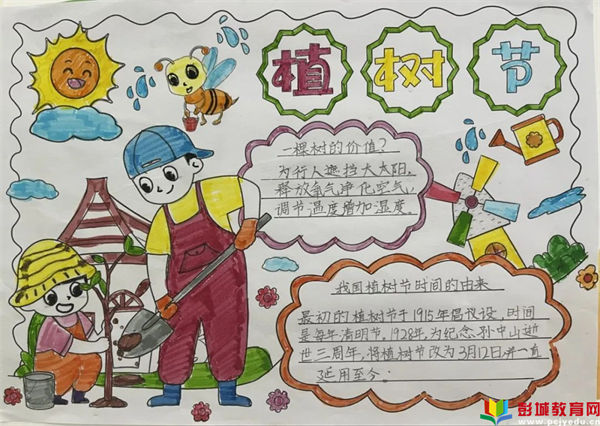 植树节
一棵树的价值？
为行人遮挡大太阳，
释放氧气净化空气，
调节温度增加湿度。
我国植树节时间的由来
最初的植树节于1915年倡议设，时间
是每年清明节。1928年，为纪念孙中山逝
世三周年，将植树节改为3月12日并一直
延用至今。
彭城教育网
www.pcjyedu.cn